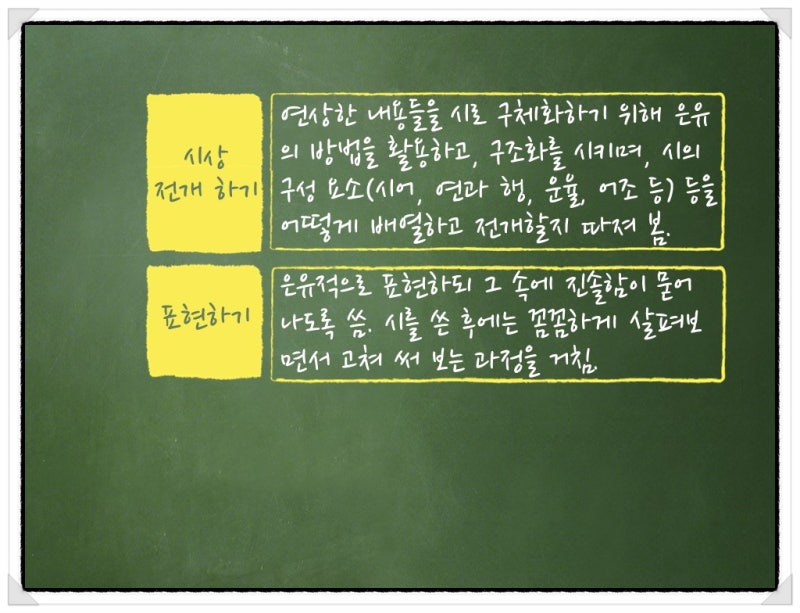 시상
전개 하기
연상한 내용들을 시로 구체화하기 위해 은유
의 방법을 활용하고, 구조화를 시키며, 시의
구성 요소(시어, 연과 행, 운율, 어조 등) 등을
어떻게 배열하고 전개할지 따져 봄.
표현하기
은유적으로 표현하되 그 속에 진솔함이 묻어
나도록 씀. 시를 쓴 후에는 꼼꼼하게 살펴보
면서 고쳐 써 보는 과정을 거침.